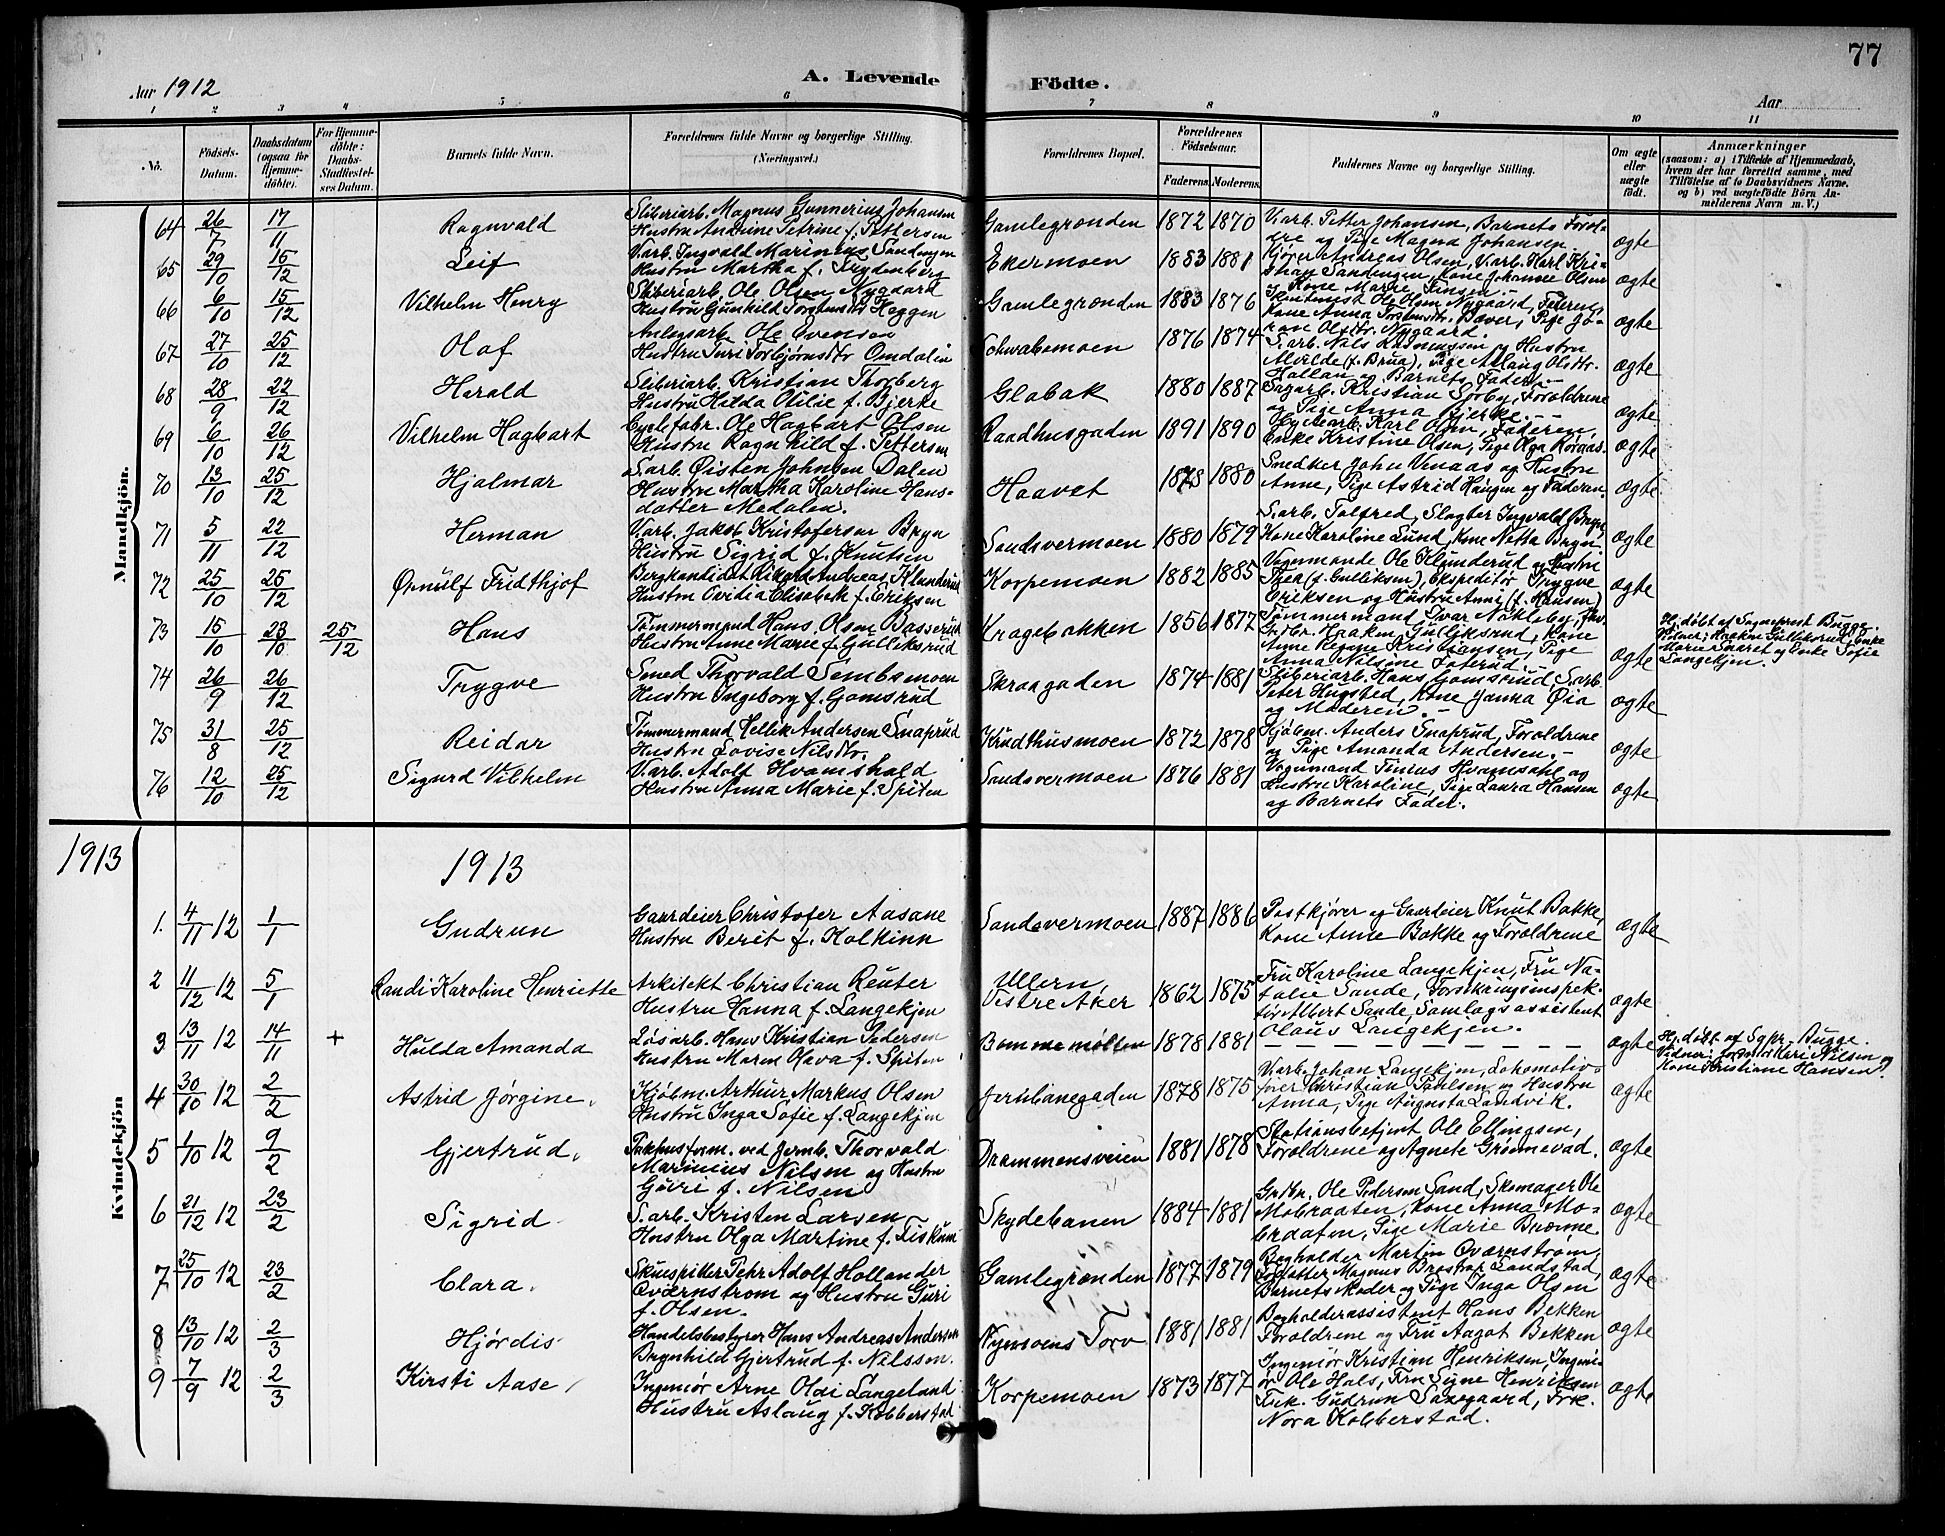 77
Aar 1912
A. Levende Födte.
Aar
1 2 3 4 5 6 7 8 9 10 11
No.
Födsels-Datum.
Daabsdatum (ogsaa for Hjemme-döbte).
For Hjemme-döbte: Daabs-Stadfæstel-ses Datum.
Barnets fulde Navn.
Forældrenes fulde Navne og borgerlige Stilling.
(Næringsvei.)
Forældrenes Bopæl.
Forældrenes Födselsaar.
Faderens. Moderens.
Faddernes Navne og borgerlige Stilling.
Om ægte eller uægte födt.
Anmærkninger
(saasom: a) i Tilfælde af Hjemmedaab, hvem der har forrettet samme, med Tilföielse af to Daabsvidners Navne. og b) ved uægtefödte Börn An-melderens Navn m. V.)
Mandkjön.
64 26/7 17/11 Ragnvald
Sliberiarb. Magnus Gunnerius Johansen
Hustru Andrine Petrine f. Pettersen
Gamlegrænden 1872 1870
V.arb. Petter Johansen, Barnets Foræl-
dre og Pige Magna Johansen.
ægte
65 29/10 15/12 Leif
V.arb. Ingvald Marinius Sandengen
Hustru Martha f. Frydenberg
Ekermoen 1883 1881
Kjører Andreas Olsen, V.arb. Karl Kri-
stian Sandengen, Kone Johanne Olsen
og Kone Marie Finsen.
ægte
66 6/10 15/12 Vilhelm Henry
Sliberiarb. Ole Olsen Nygaard
Hustru Gunhild Torstensdtr Heggen
Gamlegrænden 1883 1876
Ole Olsen Nygaard, Faderen,
Kone Anna Torstensdtr. Bæver, Pige Jo-
Olsdtr. Nygaard.
ægte
67 27/10 25/12 Olaf
Anlegsarb. Ole Evensen
Hustru Turi Torbjørnsdtr Omdalen
Schwabemoen 1876 1874
S.arb. Nils Rasmussen og Hustru
Alvilde (f. Brua), Pige Aslaug Olsdtr.
Hallan og Barnets Fader.
ægte
68 28/9 22/12 Harald
Sliberiarb. Kristian Thorberg
Hustru Hilda Otilie f. Bjerke
Glabak 1880 1887
Sagarb. Kristian Sørby, Forældrene
og Pige Anna Bjerke.
ægte
69 6/10 26/12 Vilhelm Hagbart
Cyclefabr. Ole Hagbart Olsen
Hustru Ragnhild f. Pettersen
Raadhusgaden 1891 1890
Karl Olsen, Faderen,
Enke Kristine Olsen, Pige Olga Røraas.
ægte
70 13/10 25/12 Hjalmar
S.arb. Øisten Johnsen Dalen
Hustru Martha Karoline Hans-
datter Medalen.
Haavet 1878 1880
Snedker John Venaas og Hustru
Anne, Pige Astrid Haugen og Faderen
ægte
71 5/11 22/12 Herman
V.arb. Jakob Kristofersen Bryn
Hustru Sigrid f. Knutsen
Sandsværmoen 1880 1879
S.arb. Tolfred, Slagter Ingvald Bryn,
Kone Karoline Lund, Kone Netta Bryn.
ægte
72 25/10 25/12 Ørnulf Fridthjof
Bergkandidat Rikard Andreas Klunderud
Hustru Ovidia Elisabeth f. Eriksen
Korpemoen 1882 1885
Vognmand Ole Klunderud og Hustru
Thea (f. Gulliksen), Ekspeditør Trygve
Eriksen og Hustru Anni (f. Hansen)
ægte
73 15/10 23/10 25/12 Hans
Tømmermand Hans Olsen Basserud
Hustru Anne Marie f. Gulliksrud
Kragebakken 1856 1877
Tømmermand Ivar Nökleby,
Grdbr. Haaken Gulliksrud, Kone
Anne Regine Kristiansen, Pige
Anna Nilsine Foterud.
ægte
Hj. döbt af Sogneprest Bugge.
Vidner: Haaken Gulliksrud, Enke
Marie Saaret og Enke Sofie
Langekjen.
74 26/9 26/12 Trygve
Smed Thorvald Sembsmoen
Hustru Ingeborg f. Gomsrud
Skraagaden 1874 1881
Sliberiarb. Hans Gomsrud, S.arb.
Peter Hugsted, Kone Janna Øia
og Moderen.
ægte
75 31/8 25/12 Reidar
Tømmermand Hellik Andersen Snaprud
Hustru Lovise Nilsdtr.
Krudthusmoen 1872 1878
Kjøbm. Anders Snaprud, Forældrene
og Pige Amanda Andersen.
ægte
76 12/10 25/12 Sigurd Vilhelm
V.arb. Adolf Hvamshald
Hustru Anna Marie f. Spiten
Sandsværmoen 1876 1881
Vognmand Finius Hvamsahl og
Hustru Karoline, Pige Laura Hansen
og Barnets Fader.
ægte
1913 1913
Kvindekjön
1. 4/11 12 1/1 Gudrun
Gaardeier Christofer Aasane
Hustru Berit f. Kolkinn
Sandsværmoen 1887 1886
Postkjører og Gaardeier Knut Bakke,
Kone Anne Bakke og Forældrene
ægte
2 11/12 12 5/1 Randi Karoline Henriette
Arkitekt Christian Reuter
Hustru Hanna f. Langekjen
Ullern,
Vestre Aker 1862 1875
Fru Karoline Langekjen, Fru Na-
talie Sande, Forsikringsinspek-
tør Albert Sande, Samlagsassistent
Olaus Langekjen.
ægte
3 13/11 12 14/11 + Hulda Amanda
Løsarb. Hans Kristian Pedersen
Hustru Maren Olava f. Spiten
1878 1881
ægte
Hj. döbt af Sgpr. Bugge.
Vidner: Kari Nilsen og
Kone Kristiane Hansen.
4 30/10 12 2/2 Astrid Jørgine.
Kjøbm. Arthur Markus Olsen
Hustru Inga Sofie f. Langekjen
Jernbanegaden 1878 1875
V.arb. Johan Langekjen, Lokomotiv-
fører Christian Paulsen og Hustru
Anna, Pige Augusta Landvik.
ægte
5 1/10 12 9/2 Gjertrud.
Pakhusform. ved Jernb. Thorvald
Marinius Nilsen og Hustru
Gøvri f. Nilsen
Drammensveien 1881 1878
Stationsbetjent Ole Ellingsen,
Forældrene og Agnete Grønnevad.
ægte
6 21/12 12 23/2 Sigrid
S.arb. Kristen Larsen
Hustru Olga Martine f. Fiskum
Skydebanen 1884 1881
Grdbr. Ole Pedersen Sand, Skomager Ole
Mobraaten, Kone Anna Mo-
braaten, Pige Marie Brænne
ægte
7 25/10 12 23/2 Clara.
Skuespiller Pehr Adolf Hollander
Qværnstrøm og Hustru Guri
f. Olsen.
Gamlegrænden 1877 1879
Bogholder Martin Qværnstrøm,
Forfatter Magnus Brostrup Landstad,
Barnets Moder og Pige Inga Olsen
ægte
8 13/10 12 2/3 Hjørdis
Handelsbestyrer Hans Andreas Andersen
Brynhild Gjertrud f. Nilssen.
Nymoens Torv 1881 1881
Bogholderassistent Hans Bekken
Forældrene og Fru Aagot Bekken
ægte
9 7/9 12 2/3 Kirsti Aase
Ingeniør Arne Olai Langeland
Hustru Aslaug f. Kobberstad
Korpemoen 1873 1877
Ingeniør Kristian Henriksen, Ingeni-
ør Ole Hals, Fru Signe Henriksen
Frk. Gudrun Saxegaard, Frk.
Nora Kobberstad.
ægte